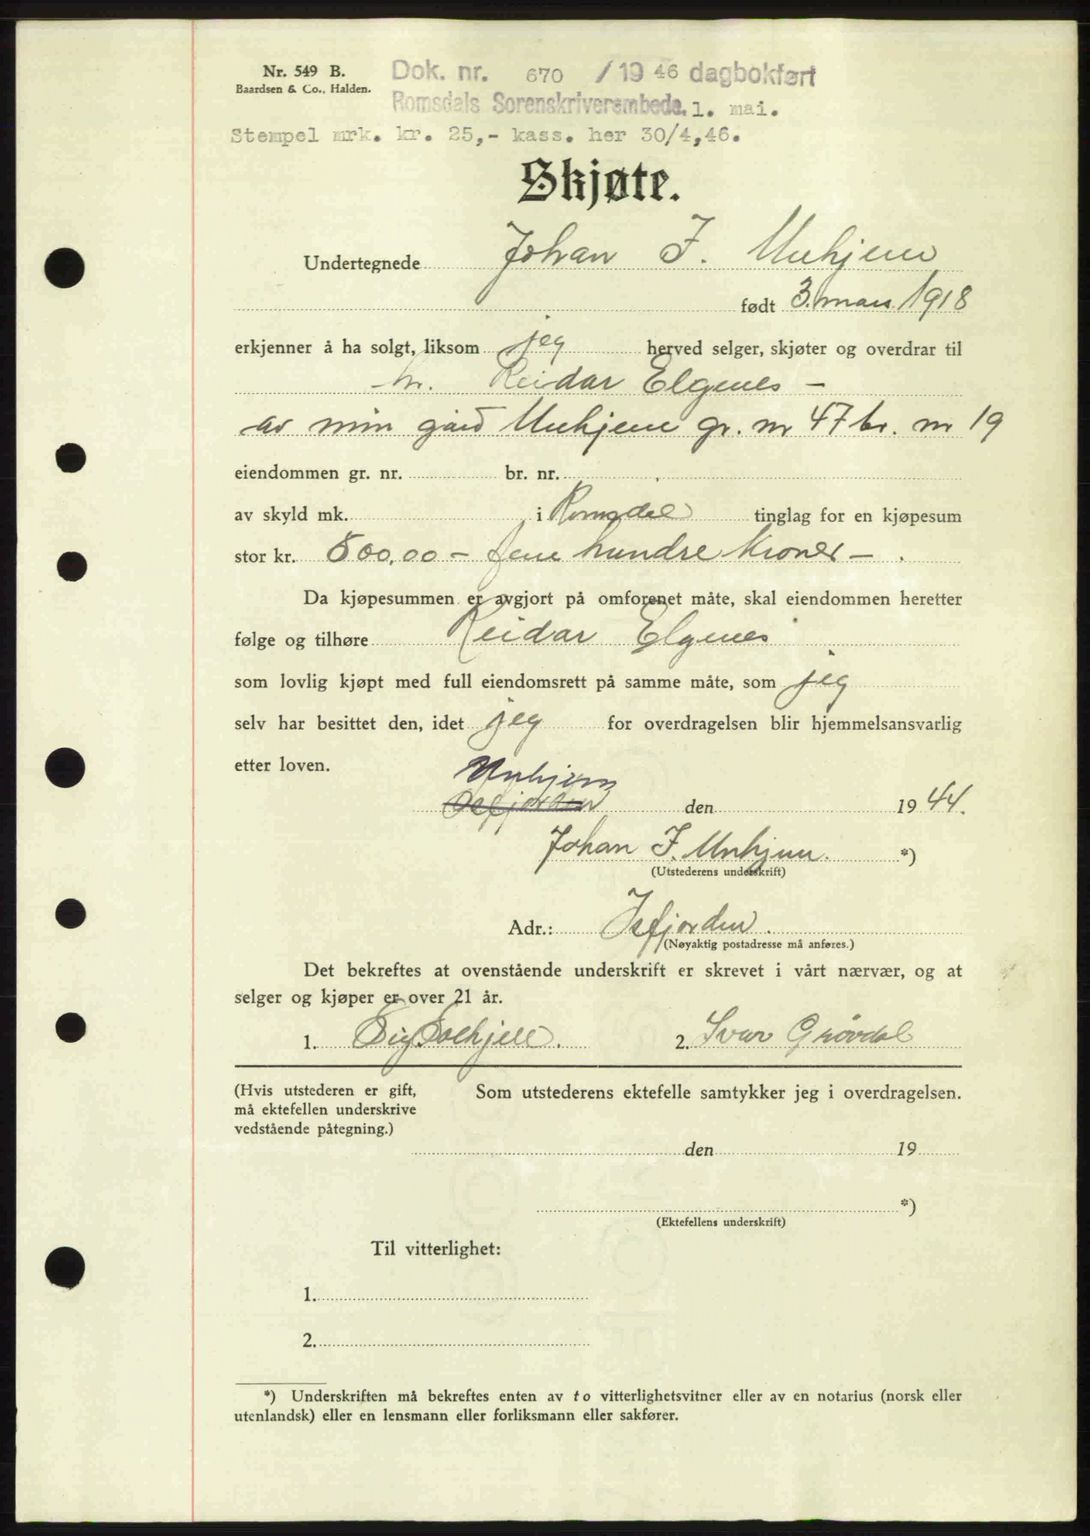 Nr. 549 B.
Baardsen & Co., Halden.
Dok. nr. 670 / 1946 dagbokført
Romsdals Sorenskriverembede. 1. mai.
Stempel mrk. kr. 25,- kass. her 30/4,46.
Skjøte.
Undertegnede Johan J. Unhjem
født 3. mars 1918
erkjenner å ha solgt, liksom jeg herved selger, skjøter og overdrar til
hr. Reidar Elgenes –
av min gård Unhjem gr. nr 47 br. nr 19
eiendommen gr. nr. br. nr.
av skyld mk. i Romsdal tinglag for en kjøpesum
stor kr. 500,00 – fem hundre kroner – .
Da kjøpesummen er avgjort på omforenet måte, skal eiendommen heretter
følge og tilhøre Reidar Elgenes
som lovlig kjøpt med full eiendomsrett på samme måte, som jeg
selv har besittet den, idet jeg for overdragelsen blir hjemmelsansvarlig
etter loven.
Unhjem
Isfjorden den 1944.
Johan J. Unhjem. *)
(Utstederens underskrift)
Adr.: Isfjorden.
(Nøyaktig postadresse må anføres.)
Det bekreftes at ovenstående underskrift er skrevet i vårt nærvær, og at
selger og kjøper er over 21 år.
1. Sig. 2. Ivar Grøvdal
(Hvis utstederen er gift,
må ektefellen underskrive
vedstående påtegning.)
Som utstederens ektefelle samtykker jeg i overdragelsen.
den 19
*)
(Ektefellens underskrift)
Til vitterlighet:
1.
2.
*) Underskriften må bekreftes enten av to vitterlighetsvitner eller av en notarius (norsk eller
utenlandsk) eller en lensmann eller forliksmann eller sakfører.